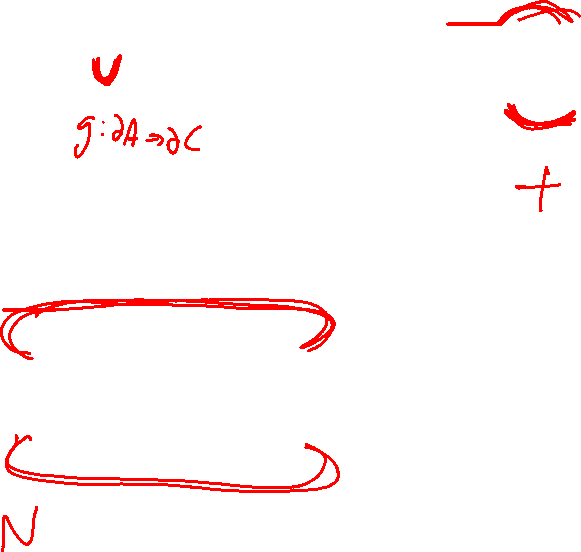 ∪
g:∂A→∂C
+
N